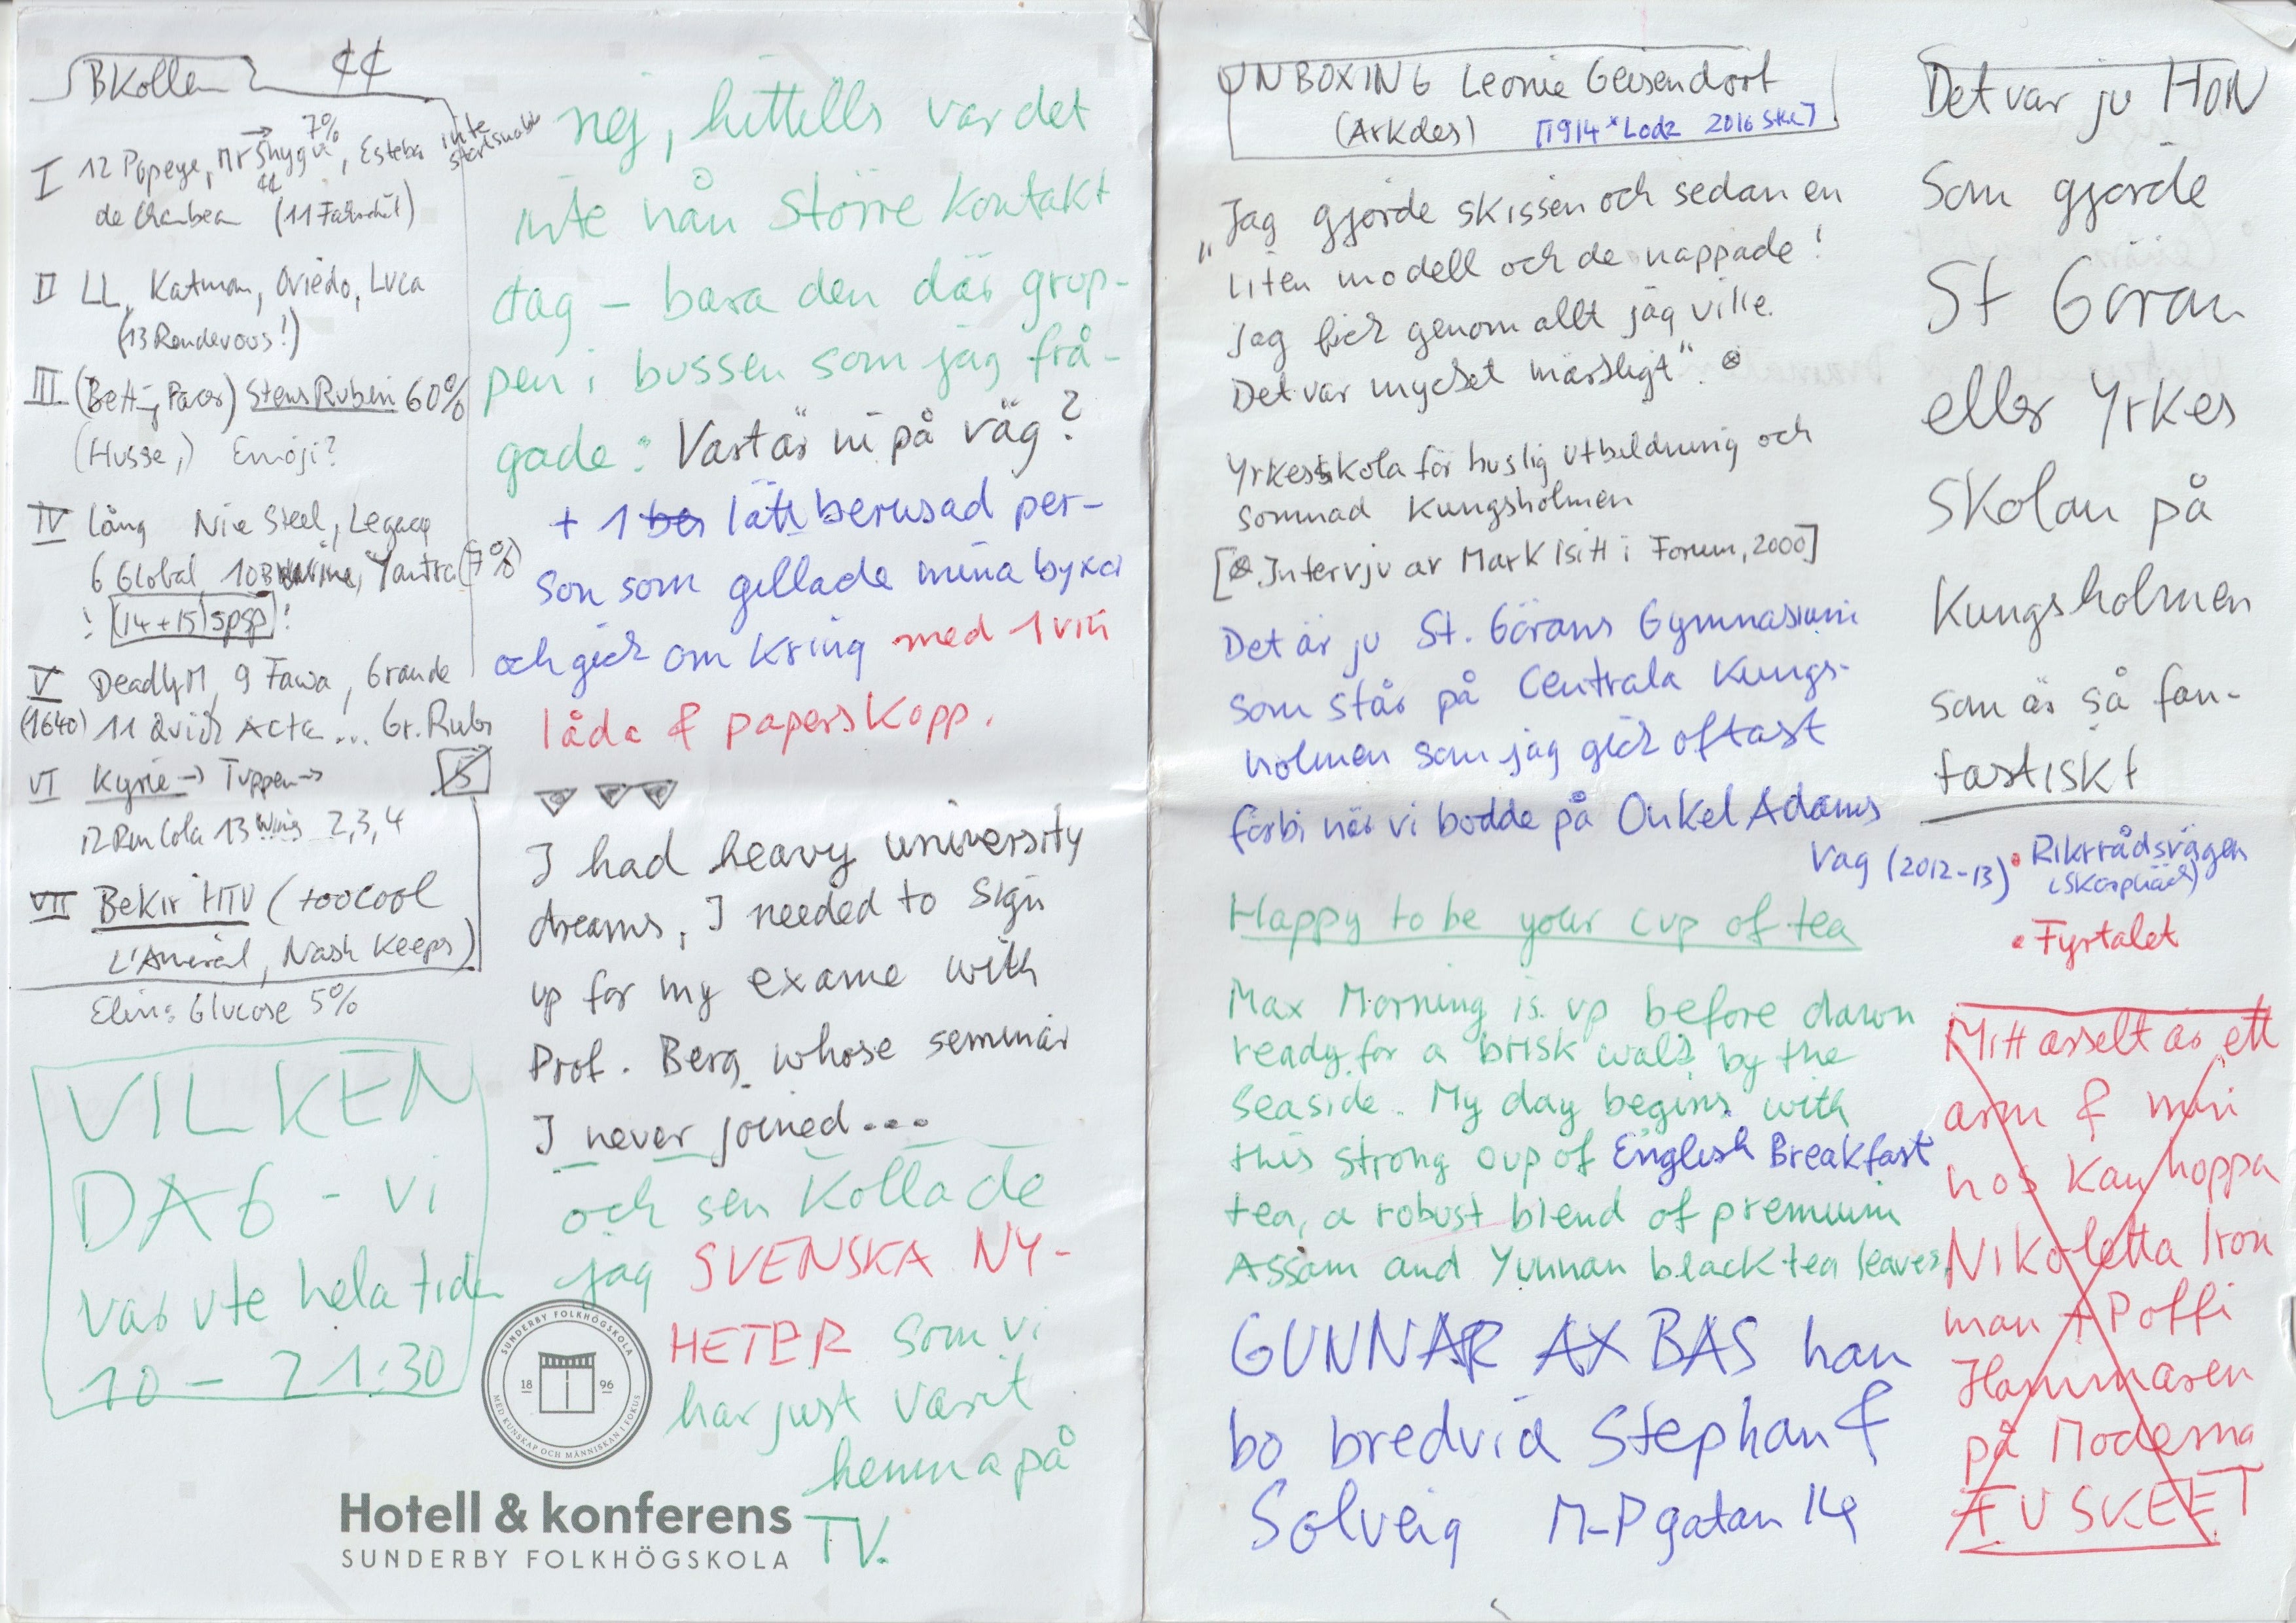 BKollen ¢¢
I 12 Popeye, Mr Shygu 7%, Esteban inte startsnabb
de Chambean (11 Fahrschül)
II LL, Katman, Oviedo, Luca
(13 Rendevoos!)
III (Betty Pacer) Stens Rubin 60%
(Husse,) Emoji?
IV lång Nie Steel, Legacy
6 Global, 10 Yantra (7%)
! (14+15) spsp !
V DeadlyM, 9 Fawa, Grande
(1640) 11 Quick Acta ... Gr. Rubs
VI Kyrie → Tuppen → 5
12 Run Cola 13 Wing 2,3,4
VII Bekir HTV (toocool
L'Amiral, Nash Keeps)
Elin: Glucose 5%
VILKEN
DAG - vi
var ute hela tiden
10 - 21:30
nej, hittills var det
inte nån större Kontakt
dag - bara den där grup-
pen i bussen som jag frå-
gade: Vart är ni på väg?
+ 1 ber lätt berusad per-
son som gillade mina byxor
och gick omkring med 1 vin
låda & paperskopp.
I had heavy university
dreams, I needed to sign
up for my exame with
Prof. Berg whose seminar
I never joined...
och sen Kollade
jag SVENSKA NY-
HETER som vi
har just varit
hemma på
TV.
SUNDERBY FOLKHÖGSKOLA
18 96
MED KUNSKAP OCH MÄNNISKAN I FOKUS
Hotell & konferens
SUNDERBY FOLKHÖGSKOLA
UNBOXING Leonie Geisendorf
(ArkDes) [1914 * Lodz 2016 Sthl]
"Jag gjorde skissen och sedan en
liten modell och de nappade!
Jag fick genom allt jag ville.
Det var mycket märkligt". ⊗
Yrkesskola för huslig utbildning och
sömnad Kungsholmen
[⊗ Intervju av Mark Isitt i Forum, 2000]
Det är ju St. Görans Gymnasium
som står på Centrala Kungs-
holmen som jag gick oftast
förbi när vi bodde på Onkel Adams
väg (2012-13) • Riksrådsvägen
(Skarpnäck)
• Fyrtalet
Happy to be your cup of tea
Max Morning is up before dawn
ready for a brisk walk by the
seaside. My day begins with
this strong cup of English Breakfast
tea, a robust blend of premium
Assam and Yunnan black tea leaves.
GUNNAR AX BAS han
bo bredvid Stephan &
Solveig M-P gatan 14
Det var ju HON
som gjorde
St Göran
eller Yrkes
skolan på
Kungsholmen
som är så fan-
tastiskt
Mitt asselt är ett
arm & min
hos kan hoppa
Nikoletta Iron
man + Poffi
Hammaren
på Moderna
FUSKEET